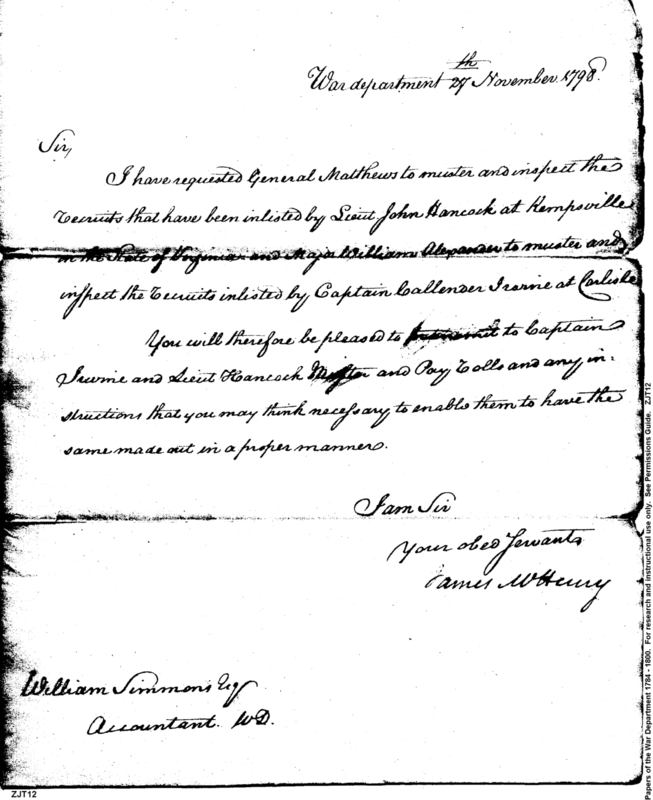 War department 27th November 1798.
Sir,
I have requested General Matthews to muster and inspect the
recruits that have been inlisted by Lieut John Hancock at Kempsville
in the State of Virginia and Major William Alexander to muster and
inspect the recruits inlisted by Captain Callender Irvine at Carlisle
You will therefore be pleased to transmit to Captain
Irvine and Lieut Hancock Muster and Pay rolls and any in=
structions that you may think necessary to enable them to have the
same made out in a proper manner.
I am Sir
Your obed Servants
James McHenry
William Simmons Esq
Accountant. W.D.
ZJT12
Papers of the War Department 1784 - 1800. For research and instructional use only. See Permissions Guide. ZJT12